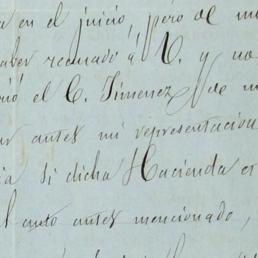 a en el juicio, pero de mi
haber recusado á V. y no
rió el C. Jimenez, de m
ar antes mi representacion
ia si dicha Hacienda er
l auto antes mencionado,